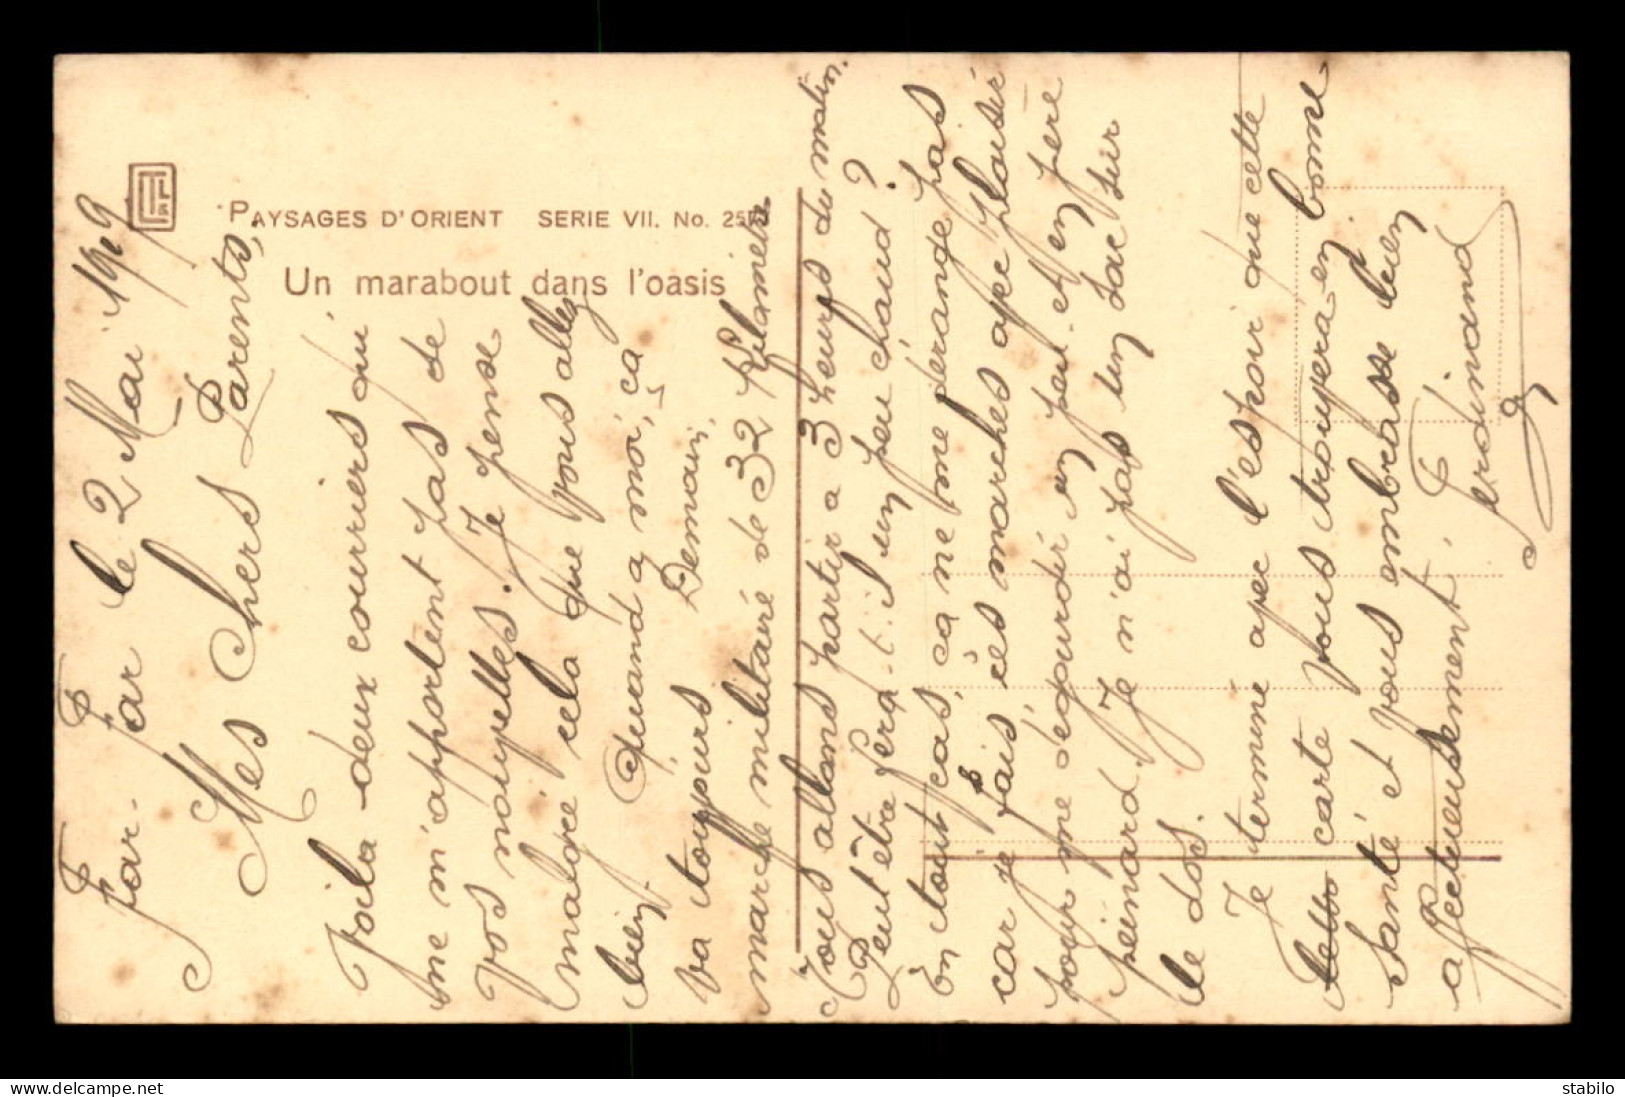 PAYSAGES D'ORIENT SERIE VII. No.
Un marabout dans l'oasis
Far - Far le 2 Mai 1919
Mes Chers Parents,
Voila deux courriers qui
me m'apportent pas de
vos nouvelles. Je pense
malgré cela que vous allez
bien. Quand a moi, ça
va toujours Demain,
marche militaire de 32 Kilomètre
Nous allons partir a 3 heures du matin.
Peut être fera-t-il un peu chaud ?
En tout cas, ça ne me dérange pas
car je fais ces marches avec plaisir
pour me dégourdir un peu. et en père
peinard. Je n'ai pas un sac sur
le dos.
Je termine avec l'espoir que cette
carte vous trouvera en bonne
santé et vous embrasse bien
affectueusement.
Ferdinand
stabilo